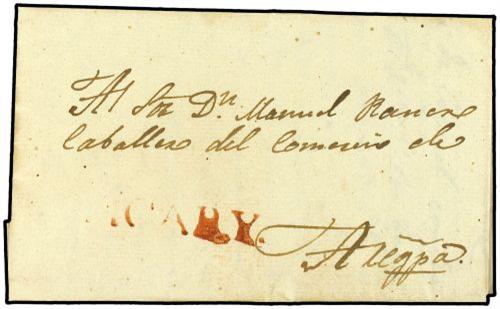 Al Sor Dn. Manuel Ranero
Caballero del Comercio de
ICARY.
Areqpa.